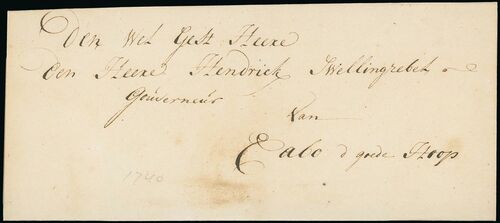 Den Wel Gest Heere
Den Heere Hendrick Swellingrebel
Gouverneur
Van
Cabo d goede Hoop
1740